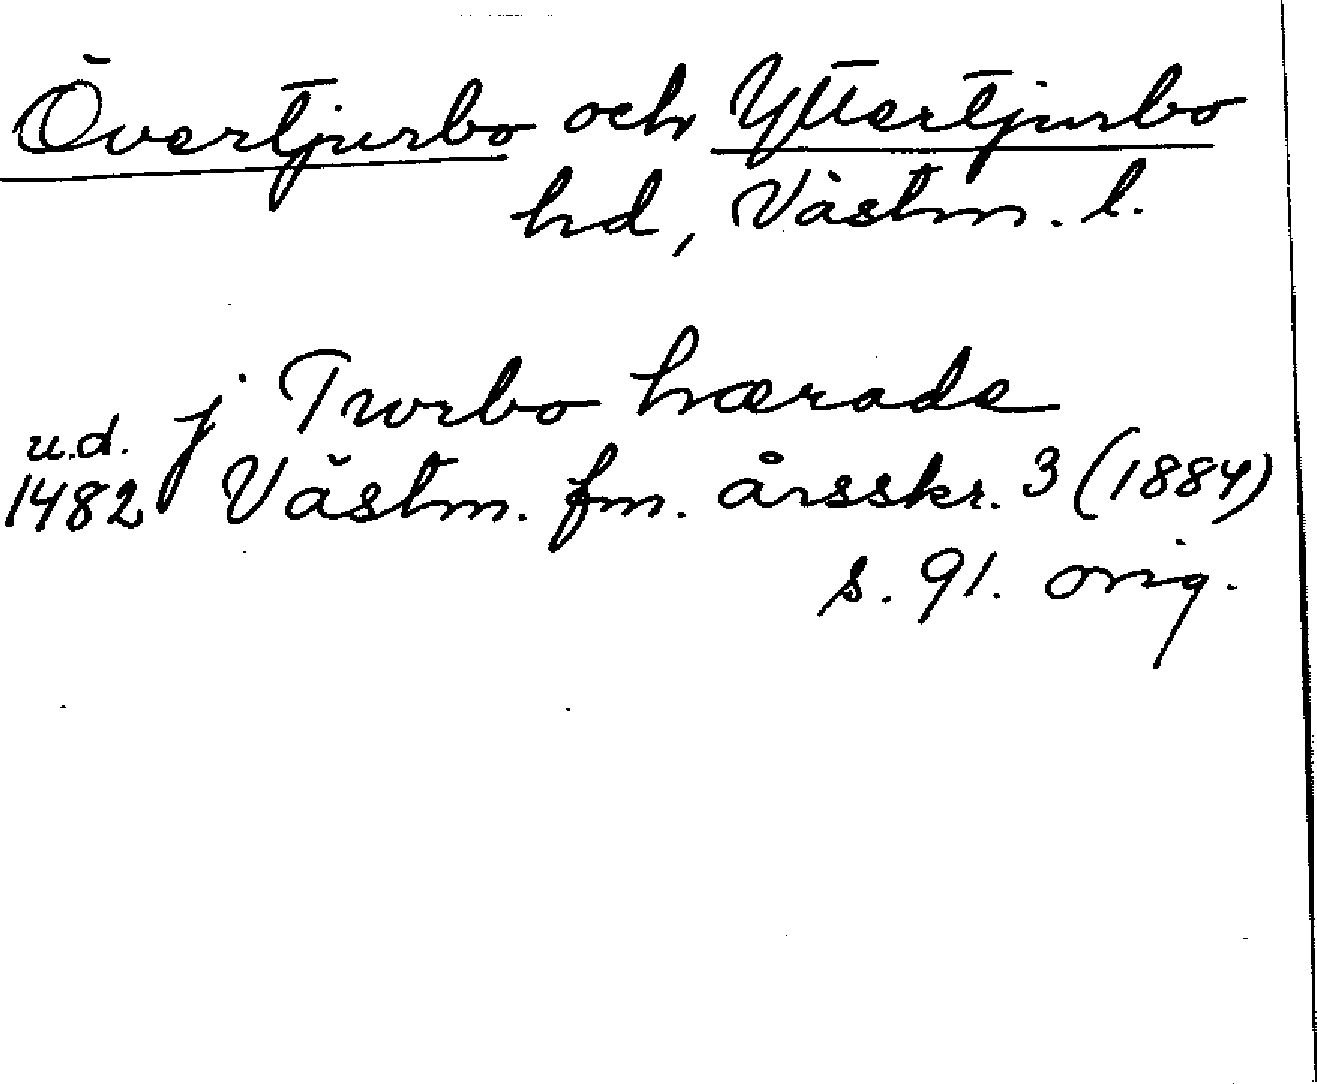 Övertjurbo och Yttertjurbo
hd, Västm. l.
u.d. j Turbo hærade
1482 Västm. fm. årsskr. 3 (1884)
s. 91. orig.